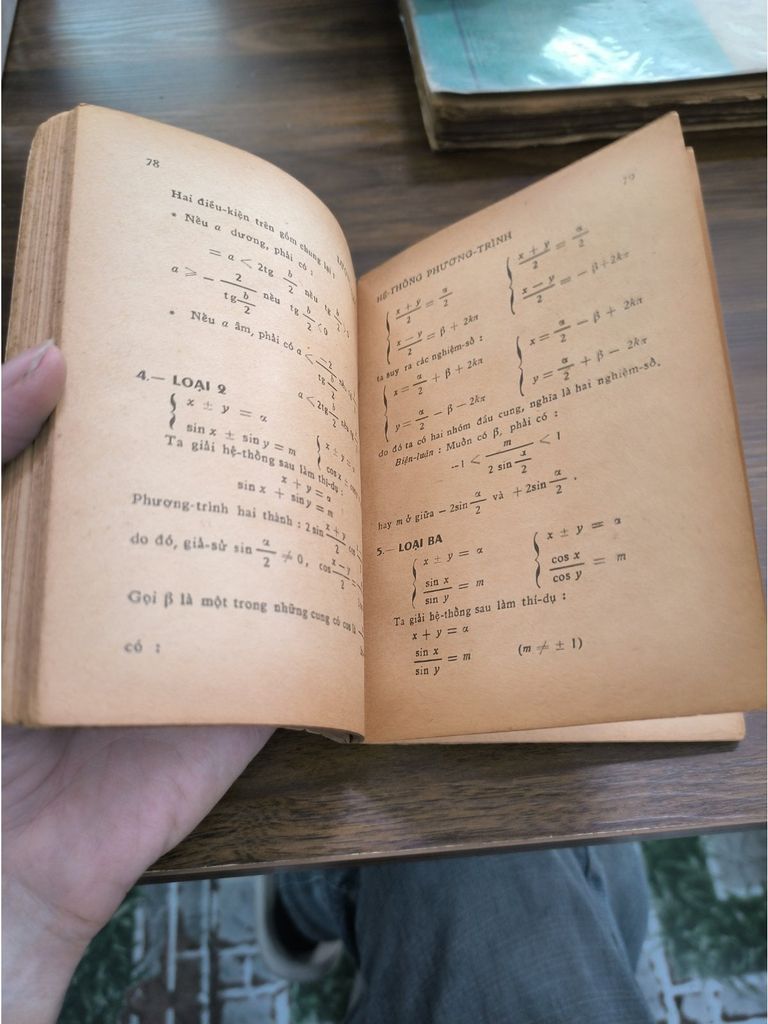 78
Hai điều-kiện trên gồm chung lại :
* Nếu a dương, phải có :
= a < 2tg b/2 nếu tg b/2 >
a ⩾ - 2/(tg b/2) nếu tg b/2 < 0
* Nếu a âm, phải có a < -2/(tg
a < 2tg b/2
4.— LOẠI 2
{ x ± y = α
{ sin x ± sin y = m
{ x ± y =
{ cos x ±
Ta giải hệ-thống sau làm thí-dụ :
x + y = α
sin x + sin y = m
Phương-trình hai thành : 2 sin (x + y)/2
do đó, giả-sử sin α/2 ≠ 0, cos (x - y)/2 =
Gọi β là một trong những cung có cos là
có :
79
HỆ-THỐNG PHƯƠNG-TRÌNH
{ (x + y)/2 = α/2 { (x + y)/2 = α/2
{ (x - y)/2 = β + 2kπ { (x - y)/2 = - β + 2kπ
ta suy ra các nghiệm-số :
{ x = α/2 + β + 2kπ { x = α/2 - β + 2kπ
{ y = α/2 - β - 2kπ { y = α/2 + β - 2kπ
do đó ta có hai nhóm đầu cung, nghĩa là hai nghiệm-số.
Biện-luận : Muốn có β, phải có :
-1 < m/(2 sin α/2) < 1
hay m ở giữa - 2sin α/2 và + 2sin α/2 .
5.— LOẠI BA
{ x ± y = α { x ± y = α
{ sin x/sin y = m { cos x/cos y = m
Ta giải hệ-thống sau làm thí-dụ :
x + y = α
sin x/sin y = m (m ≠ ± 1)